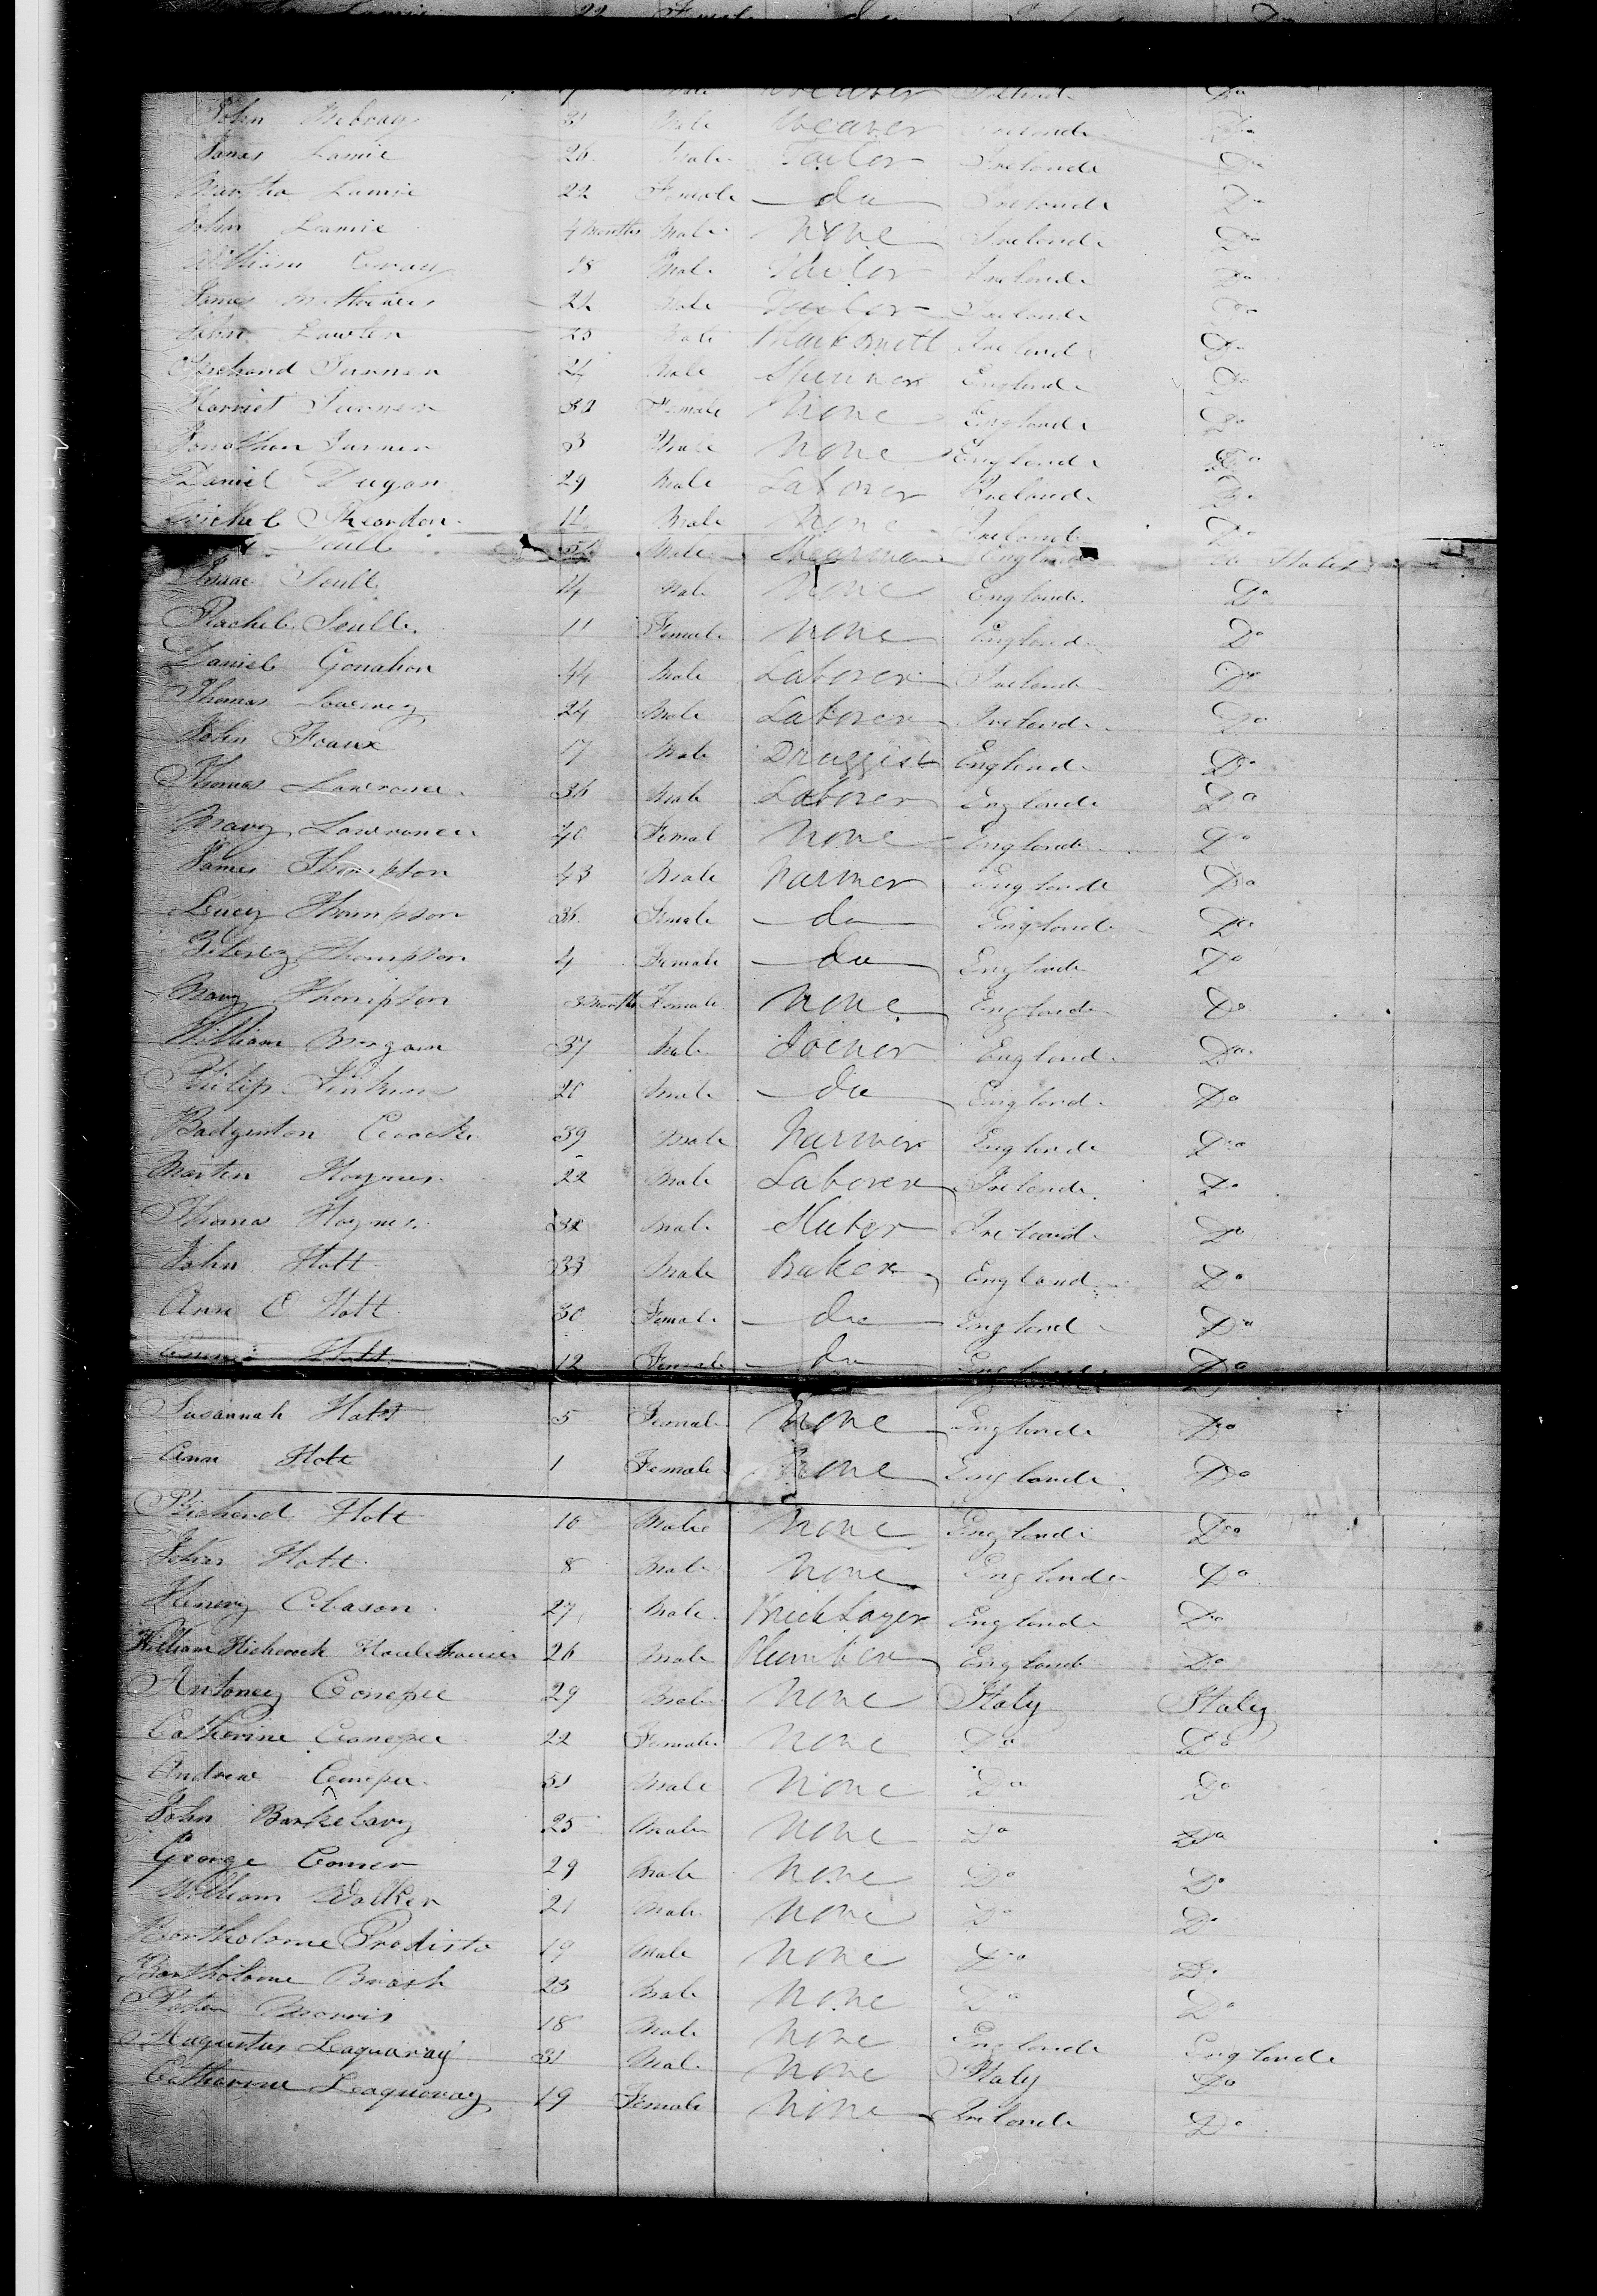 22 Female
Weaver Ireland Do
John Mebray 31 Male Weaver Ireland Do
James Lamie 26 Male Tailor Ireland Do
Martha Lamie 22 Female do Ireland Do
John Lamie 4 Months Male None Ireland Do
William Gray 18 Male Tailor Ireland Do
James 22 Male Ireland Do
John Lawler 25 Male Blacksmith Ireland Do
Richard Turner 24 Male Spinner England Do
Harriet Turner 32 Female None England Do
Jonathan Turner 3 Male None England Do
Daniel Dugan 29 Male Laborer Ireland Do
Michel Rheordon 14 Male None Ireland Do
Scull Male Shearman England States
Isaac Scull 14 Male None England Do
Rachel Scull 11 Female None England Do
Daniel Gonahon 44 Male Laborer Ireland Do
Thomas Lowrey 24 Male Laborer Ireland Do
John Foaux 17 Male Druggist England Do
Thomas Lawrance 36 Male Laborer England Do
Mary Lawrance 40 Femal None England Do
James Thompson 43 Male Farmer England Do
Lucy Thompson 36 Female do England Do
Thompson 4 Female do England Do
Mary Thompson 3 Months Female None England Do
William Morgan 37 Male Joiner England Do
Philip Jenkins 20 Male do England Do
Badgenton Coocke 39 Male Farmer England Do
Martin Haynes 22 Male Laborer Ireland Do
Thomas Haynes 32 Male Slater Ireland Do
John Hott 33 Male Baker England Do
Ann C Hott 30 Female do England Do
Hott 12 Female do England Do
Susannah Hott 5 Female None England Do
Ann Hott 1 Female None England Do
Richard Hott 10 Male None England Do
John Hott 8 Male None England Do
Henery Cleason 27 Male Brick Layer England Do
William Hichcock 26 Male Plumber England Do
Antoney Conepee 29 Male None Italy Italy
Catherine Conepee 22 Female None Do Do
Andrew Conepee 51 Male None Do Do
John Barkelary 25 Male None Do Do
George Comer 29 Male None Do Do
William Walker 21 Male None Do Do
Bartholome Prodisto 19 Male None Do Do
Bartholome Brash 23 Male None Do Do
John Morris 18 Male None England England
Augustus Laquavay 31 Male None Italy Do
Catherine Leaquavay 19 Female None Ireland Do